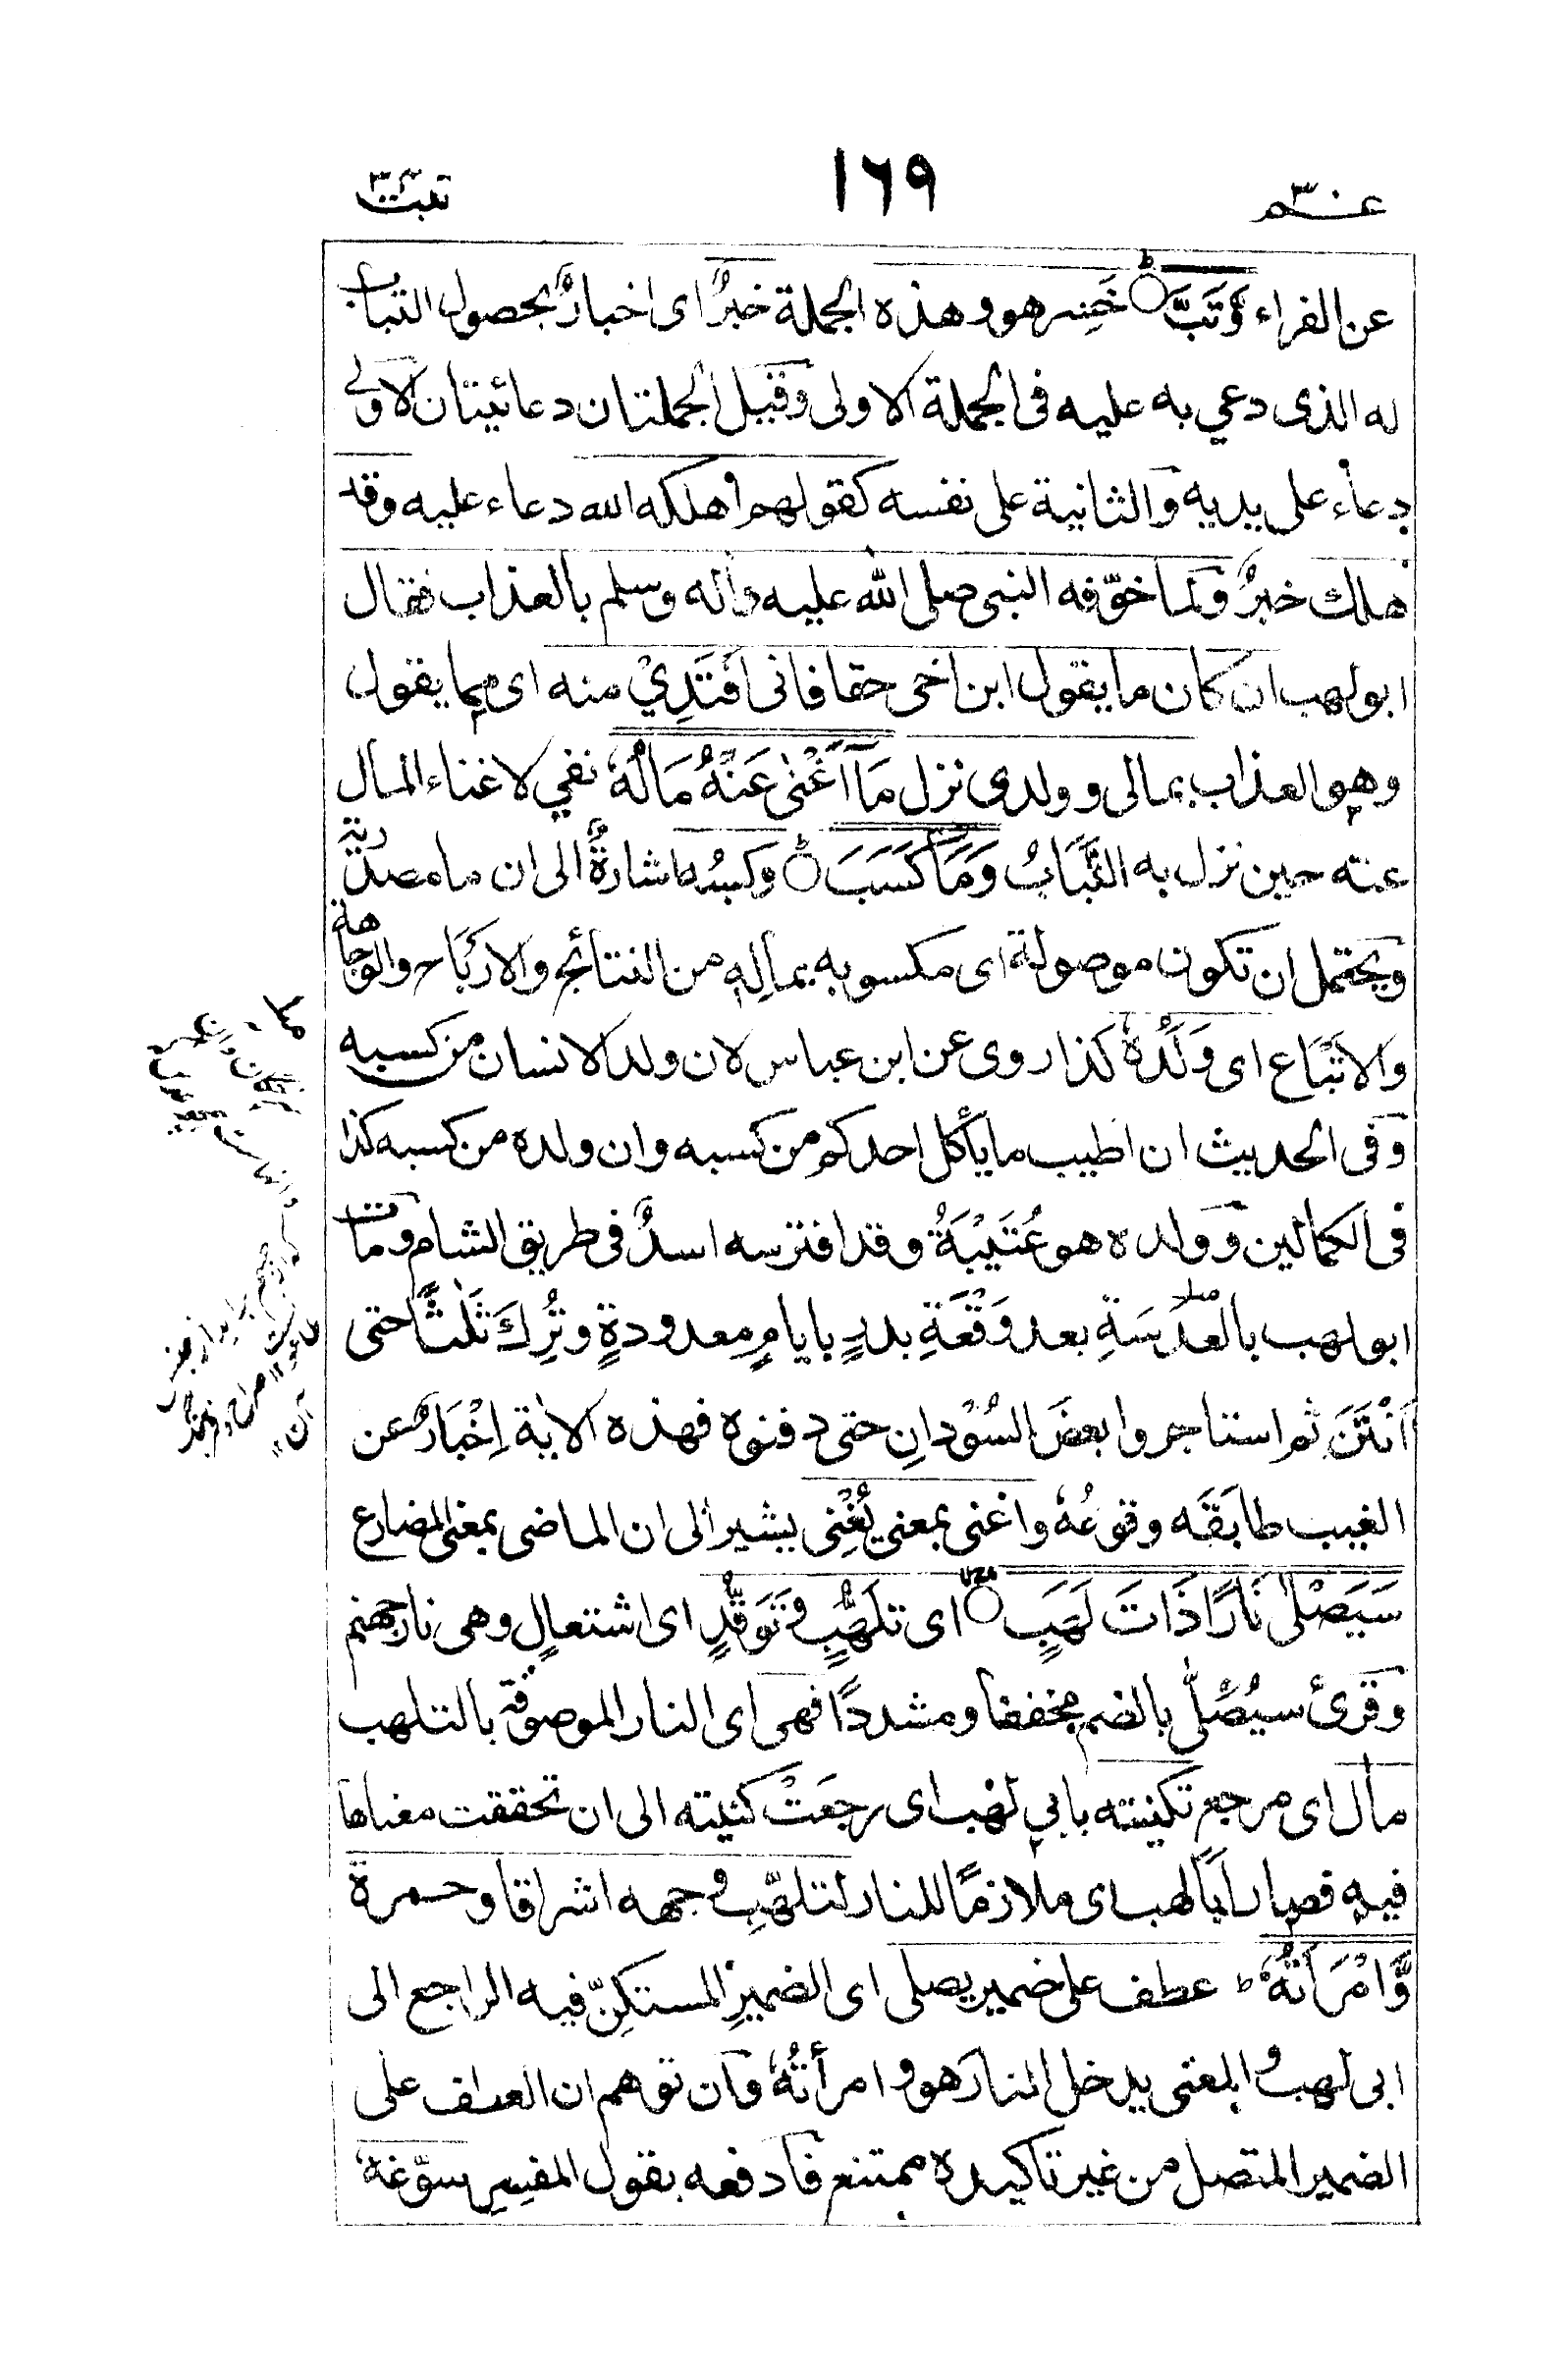 عـــم ٣٠
١٦٩
تبت
عن الفراء وَّتَبَّ خَسِر هو و هذه الجملة خبرٌ ای اخبارٌ بحصول التباب
له الذی دعي به عليه فی الجملة الاولی وقيل الجملتان دعائيتان الاولی
دعاء علی يديه والثانية علی نفسه كقولهم اهلكه الله دعاء عليه وقد
هلك خبرٌ ولما خوّفه النبی صلی الله عليه واٰله وسلم بالعذاب فقال
ابولهب ان كان ما يقول ابن اخی حقا فانی اَفْتَدِیْ منه ای مما يقول
وهو العذاب بمالی و ولدی نزل مَآ اَغْنٰی عَنْهُ مَالُهٗ نفي لاغناء المال
عنه حين نزل به التَّبَابُ وَمَا كَسَبَ وكسبُه اشارةٌ الی ان ما مصدرية
ويحتمل ان تكون موصولة ای مكسوبه بمالِهِ من النتائج والارباح والوجاهة
والاَتْبَاع ای وَلَدُهٗ كذا روی عن ابن عباس لان ولد الانسان من كسبه
وفی الحديث ان اطيب ما يأكل احدكم من كسبه وان ولده من كسبه كذا
فی الكمالين وولده هو عُتَيْبَةُ وقد افترسه اسدٌ فی طريق الشام ومات
ابولهب بالعَدَسَةِ بعد وَقْعَةِ بدرٍ بايامٍ معدودةٍ وتُرِكَ ثَلٰثًا حتی
اَنْتَنَ ثم استاجروا بعضَ السُوْدانِ حتی دفنوه فهذه الاٰية اِخْبَارٌ عن
الغيب طابَقَه وقوعُهٗ واغنی بمعنی يُغْنِی يشير الی ان الماضی بمعنی المضارع
سَيَصْلٰی نَارًا ذَاتَ لَهَبٍ ای تلَهُّبٍ وتَوَقُّدٍ ای اشتعالٍ وهی نار جهنم
وقرئ سيُصْلّٰی بالضم مخففا ومشددًا فهی ای النار الموصوفة بالتلهب
مأٰل ای مرجع تكنيته بابی لهب ای رجعَتْ كنيته الی ان تحققت معناها
فيه فصار اَبَا لهب ای ملازمًا للنار لتلهّبِ وجهه اشراقا وحمرة
وَّامْرَأَتُهٗ ط عطف علی ضمير يصلی ای الضميرِ المستكِنّ فيه الراجع الی
ابی لهب والمعنی يدخل النارَ هو و امرأتُهٗ وان توهم ان العطف علی
الضمير المتصل من غير تاكيده ممتنع فادفعه بقول المفسِر سوّغهٗ